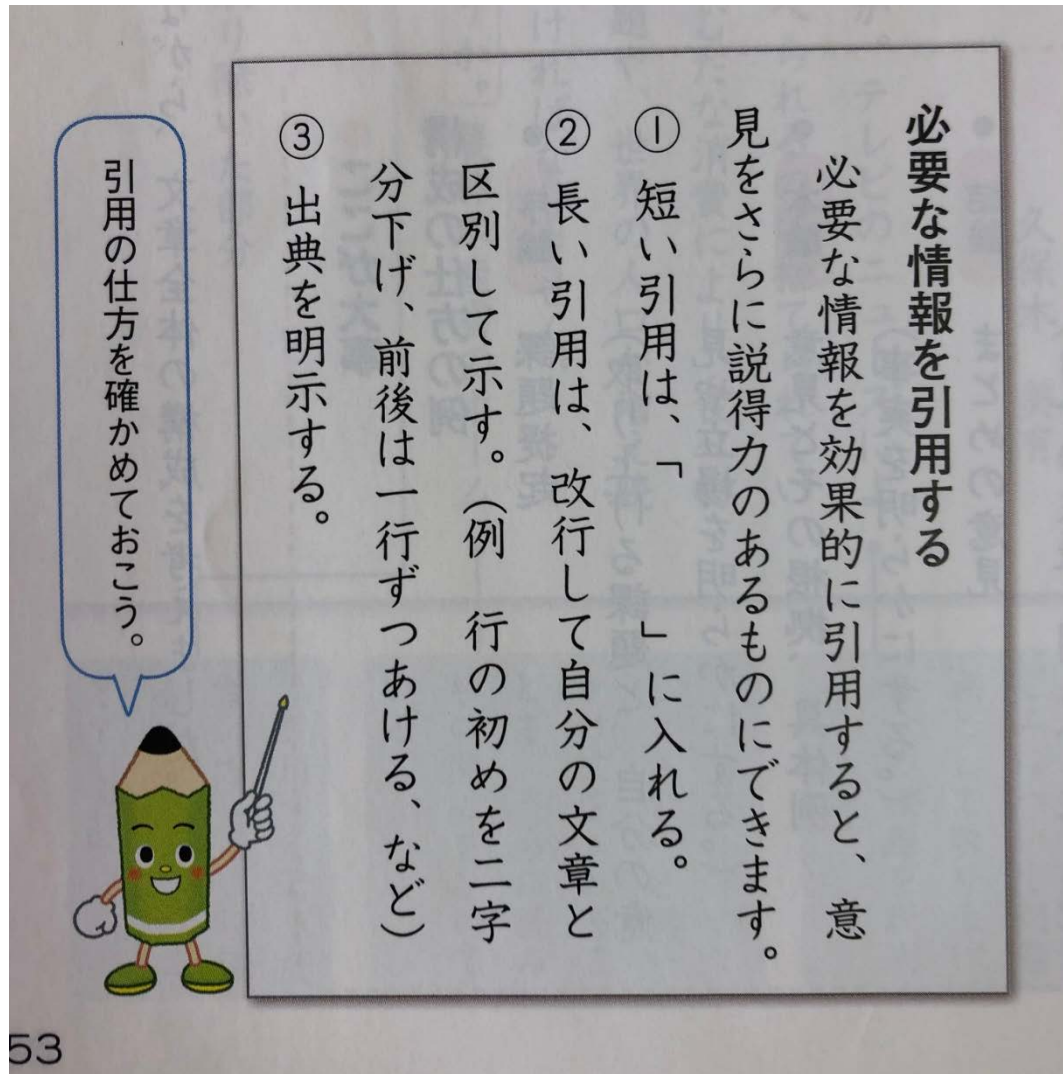 必要な情報を引用する
必要な情報を効果的に引用すると、意
見をさらに説得力のあるものにできます。
① 短い引用は、「　　　」に入れる。
② 長い引用は、改行して自分の文章と
区別して示す。（例　行の初めを二字
分下げ、前後は一行ずつあける、など）
③ 出典を明示する。
引用の仕方を確かめておこう。
53